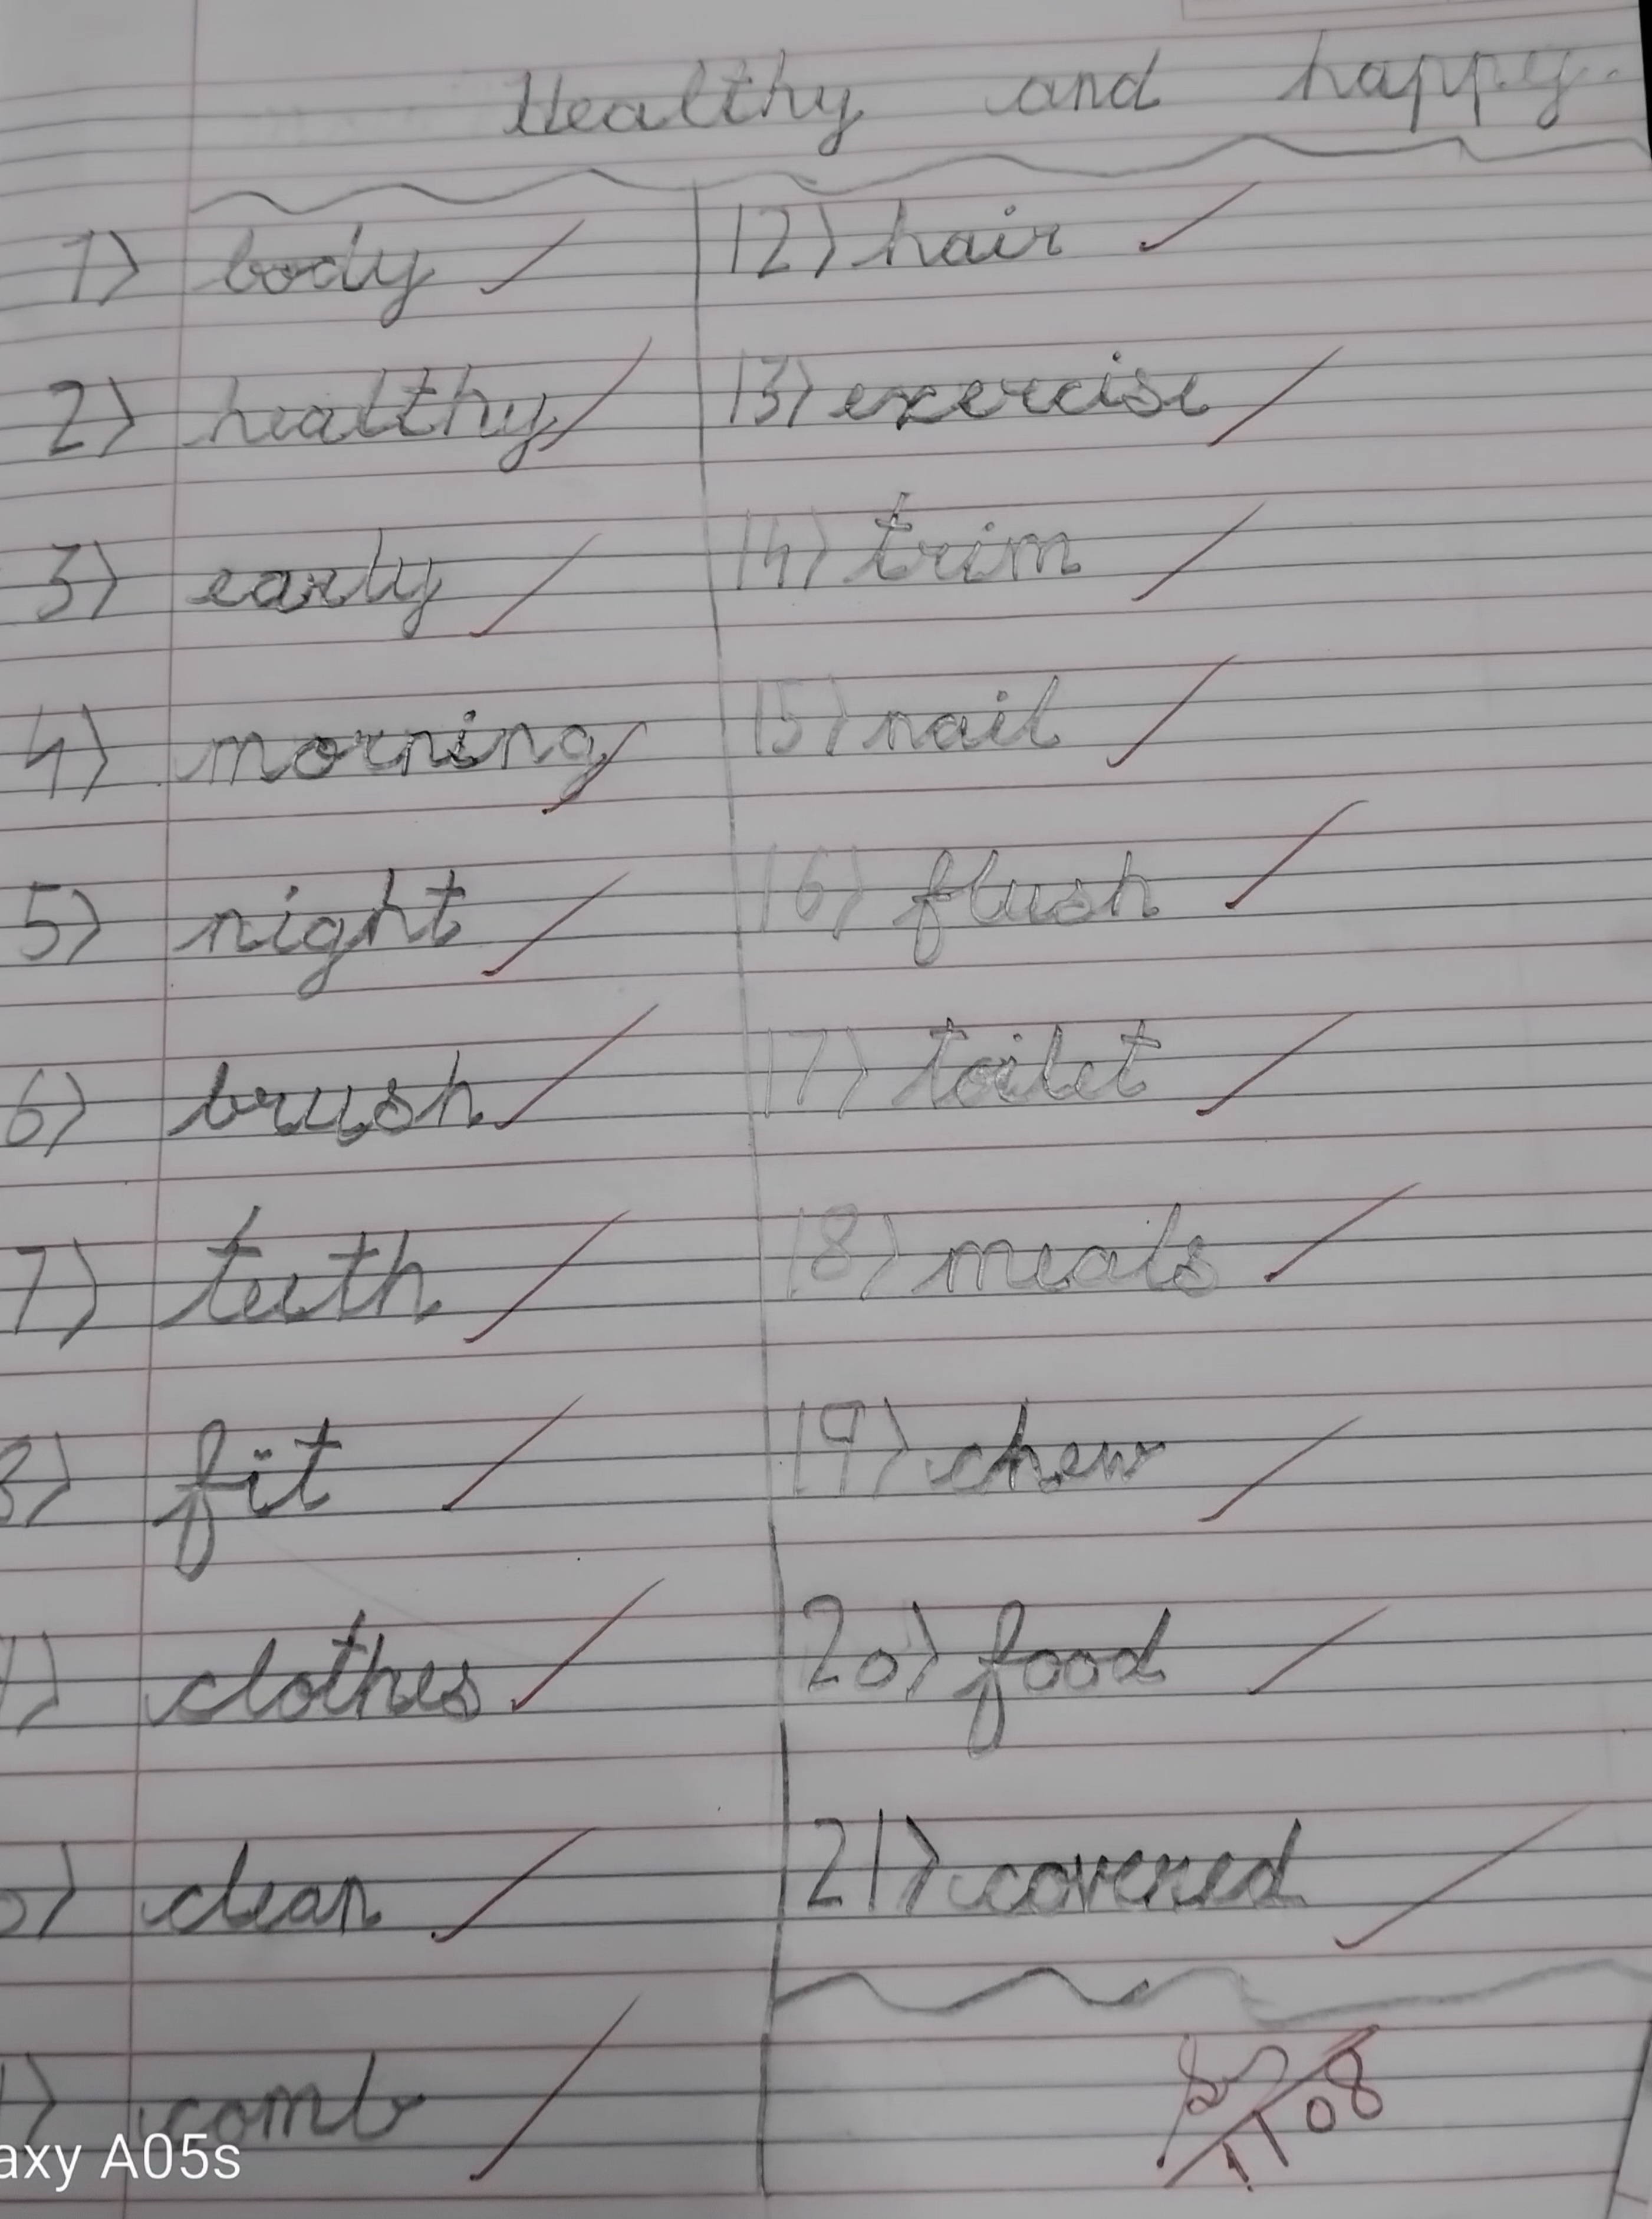 Healthy and happy.
1) body
2) healthy
3) early
4) morning
5) night
6) brush
7) teeth
8) fit
) clothes
) clean
) comb
12) hair
13) exercise
14) trim
15) nail
16) flush
17) toilet
18) meals
19) chew
20) food
21) covered
11 08
axy A05s